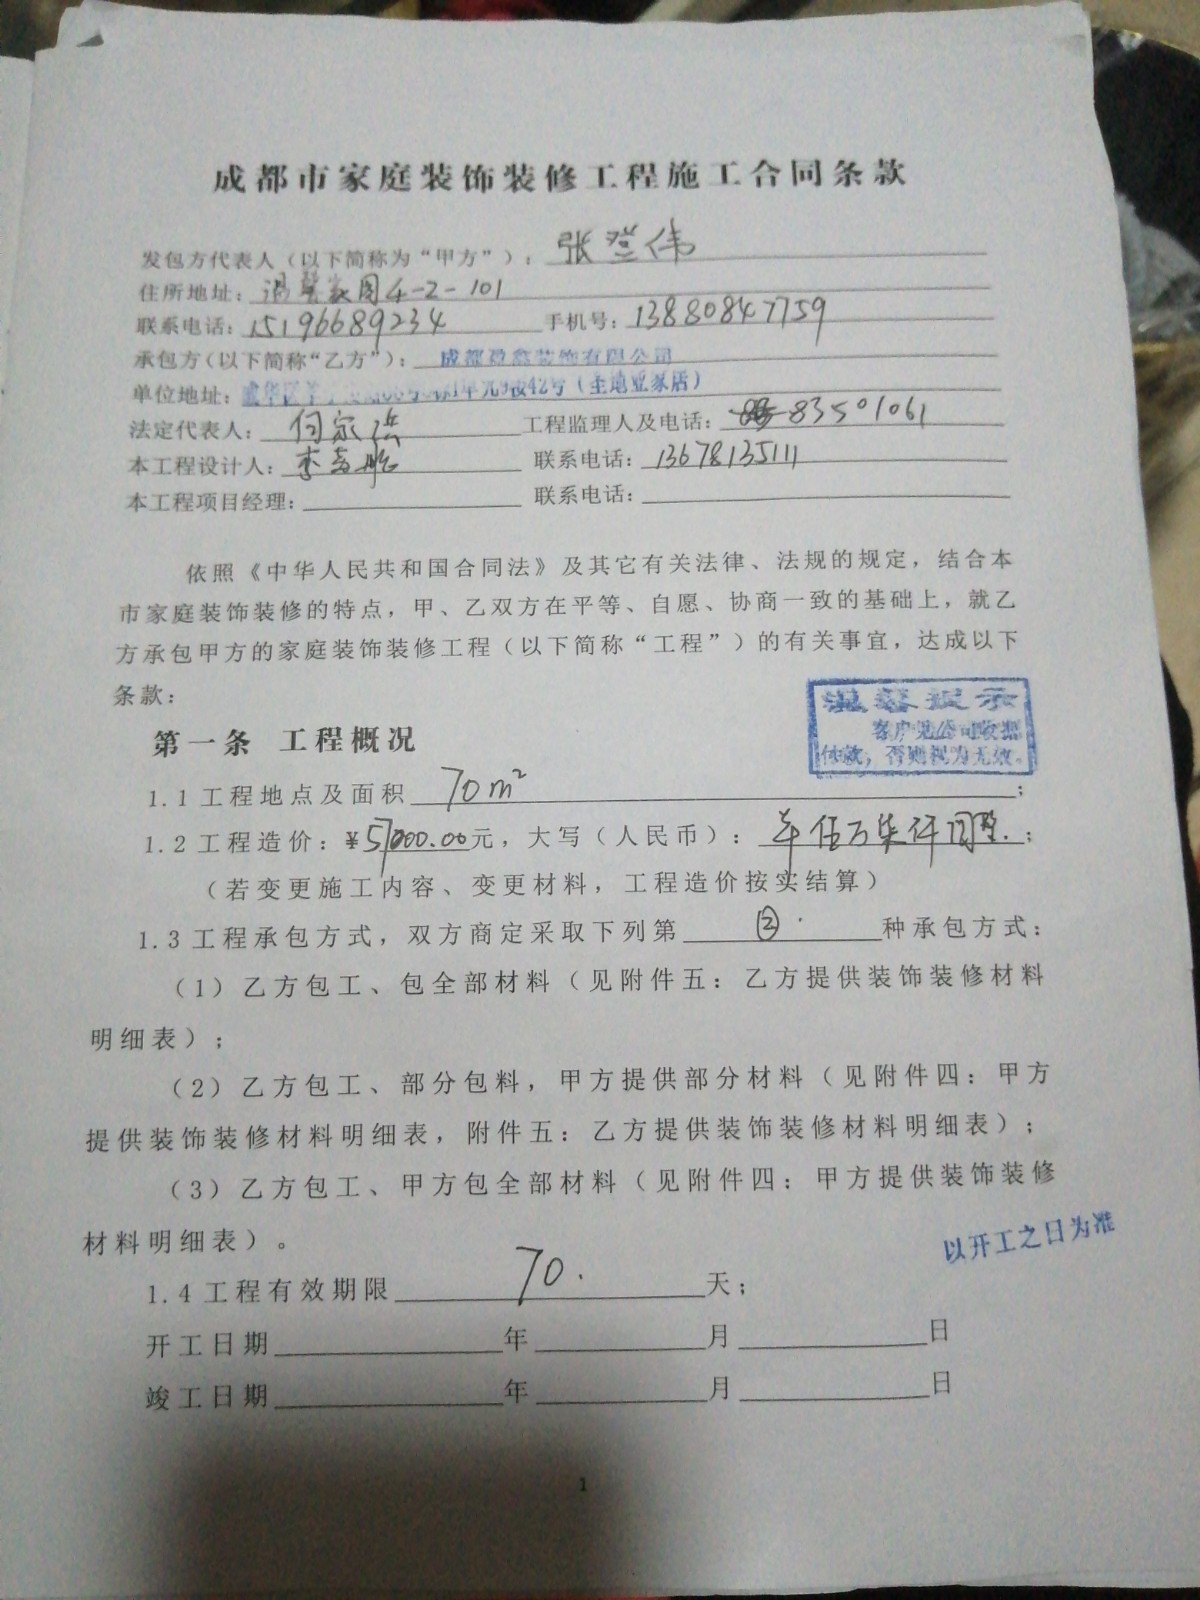 成都市家庭装饰装修工程施工合同条款
发包方代表人（以下简称为“甲方”）：张登伟
住所地址：温馨家园4-2-101
联系电话：15196689234 手机号：13880847759
承包方（以下简称“乙方”）：成都 装饰有限公司
单位地址：武华区 1单元9楼42号（圣地亚家居）
法定代表人：何家 工程监理人及电话：83501061
本工程设计人：李 联系电话：13678135111
本工程项目经理： 联系电话：
依照《中华人民共和国合同法》及其它有关法律、法规的规定，结合本
市家庭装饰装修的特点，甲、乙双方在平等、自愿、协商一致的基础上，就乙
方承包甲方的家庭装饰装修工程（以下简称“工程”）的有关事宜，达成以下
条款：
温馨提示
客户凭公司收据
付款，否则视为无效。
第一条 工程概况
1.1工程地点及面积 70m²；
1.2工程造价：¥57000.00元，大写（人民币）：伍万柒仟圆整.；
（若变更施工内容、变更材料，工程造价按实结算）
1.3工程承包方式，双方商定采取下列第②种承包方式：
（1）乙方包工、包全部材料（见附件五：乙方提供装饰装修材料
明细表）；
（2）乙方包工、部分包料，甲方提供部分材料（见附件四：甲方
提供装饰装修材料明细表，附件五：乙方提供装饰装修材料明细表）；
（3）乙方包工、甲方包全部材料（见附件四：甲方提供装饰装修
材料明细表）。
以开工之日为准
1.4工程有效期限 70. 天；
开工日期 年 月 日
竣工日期 年 月 日
1